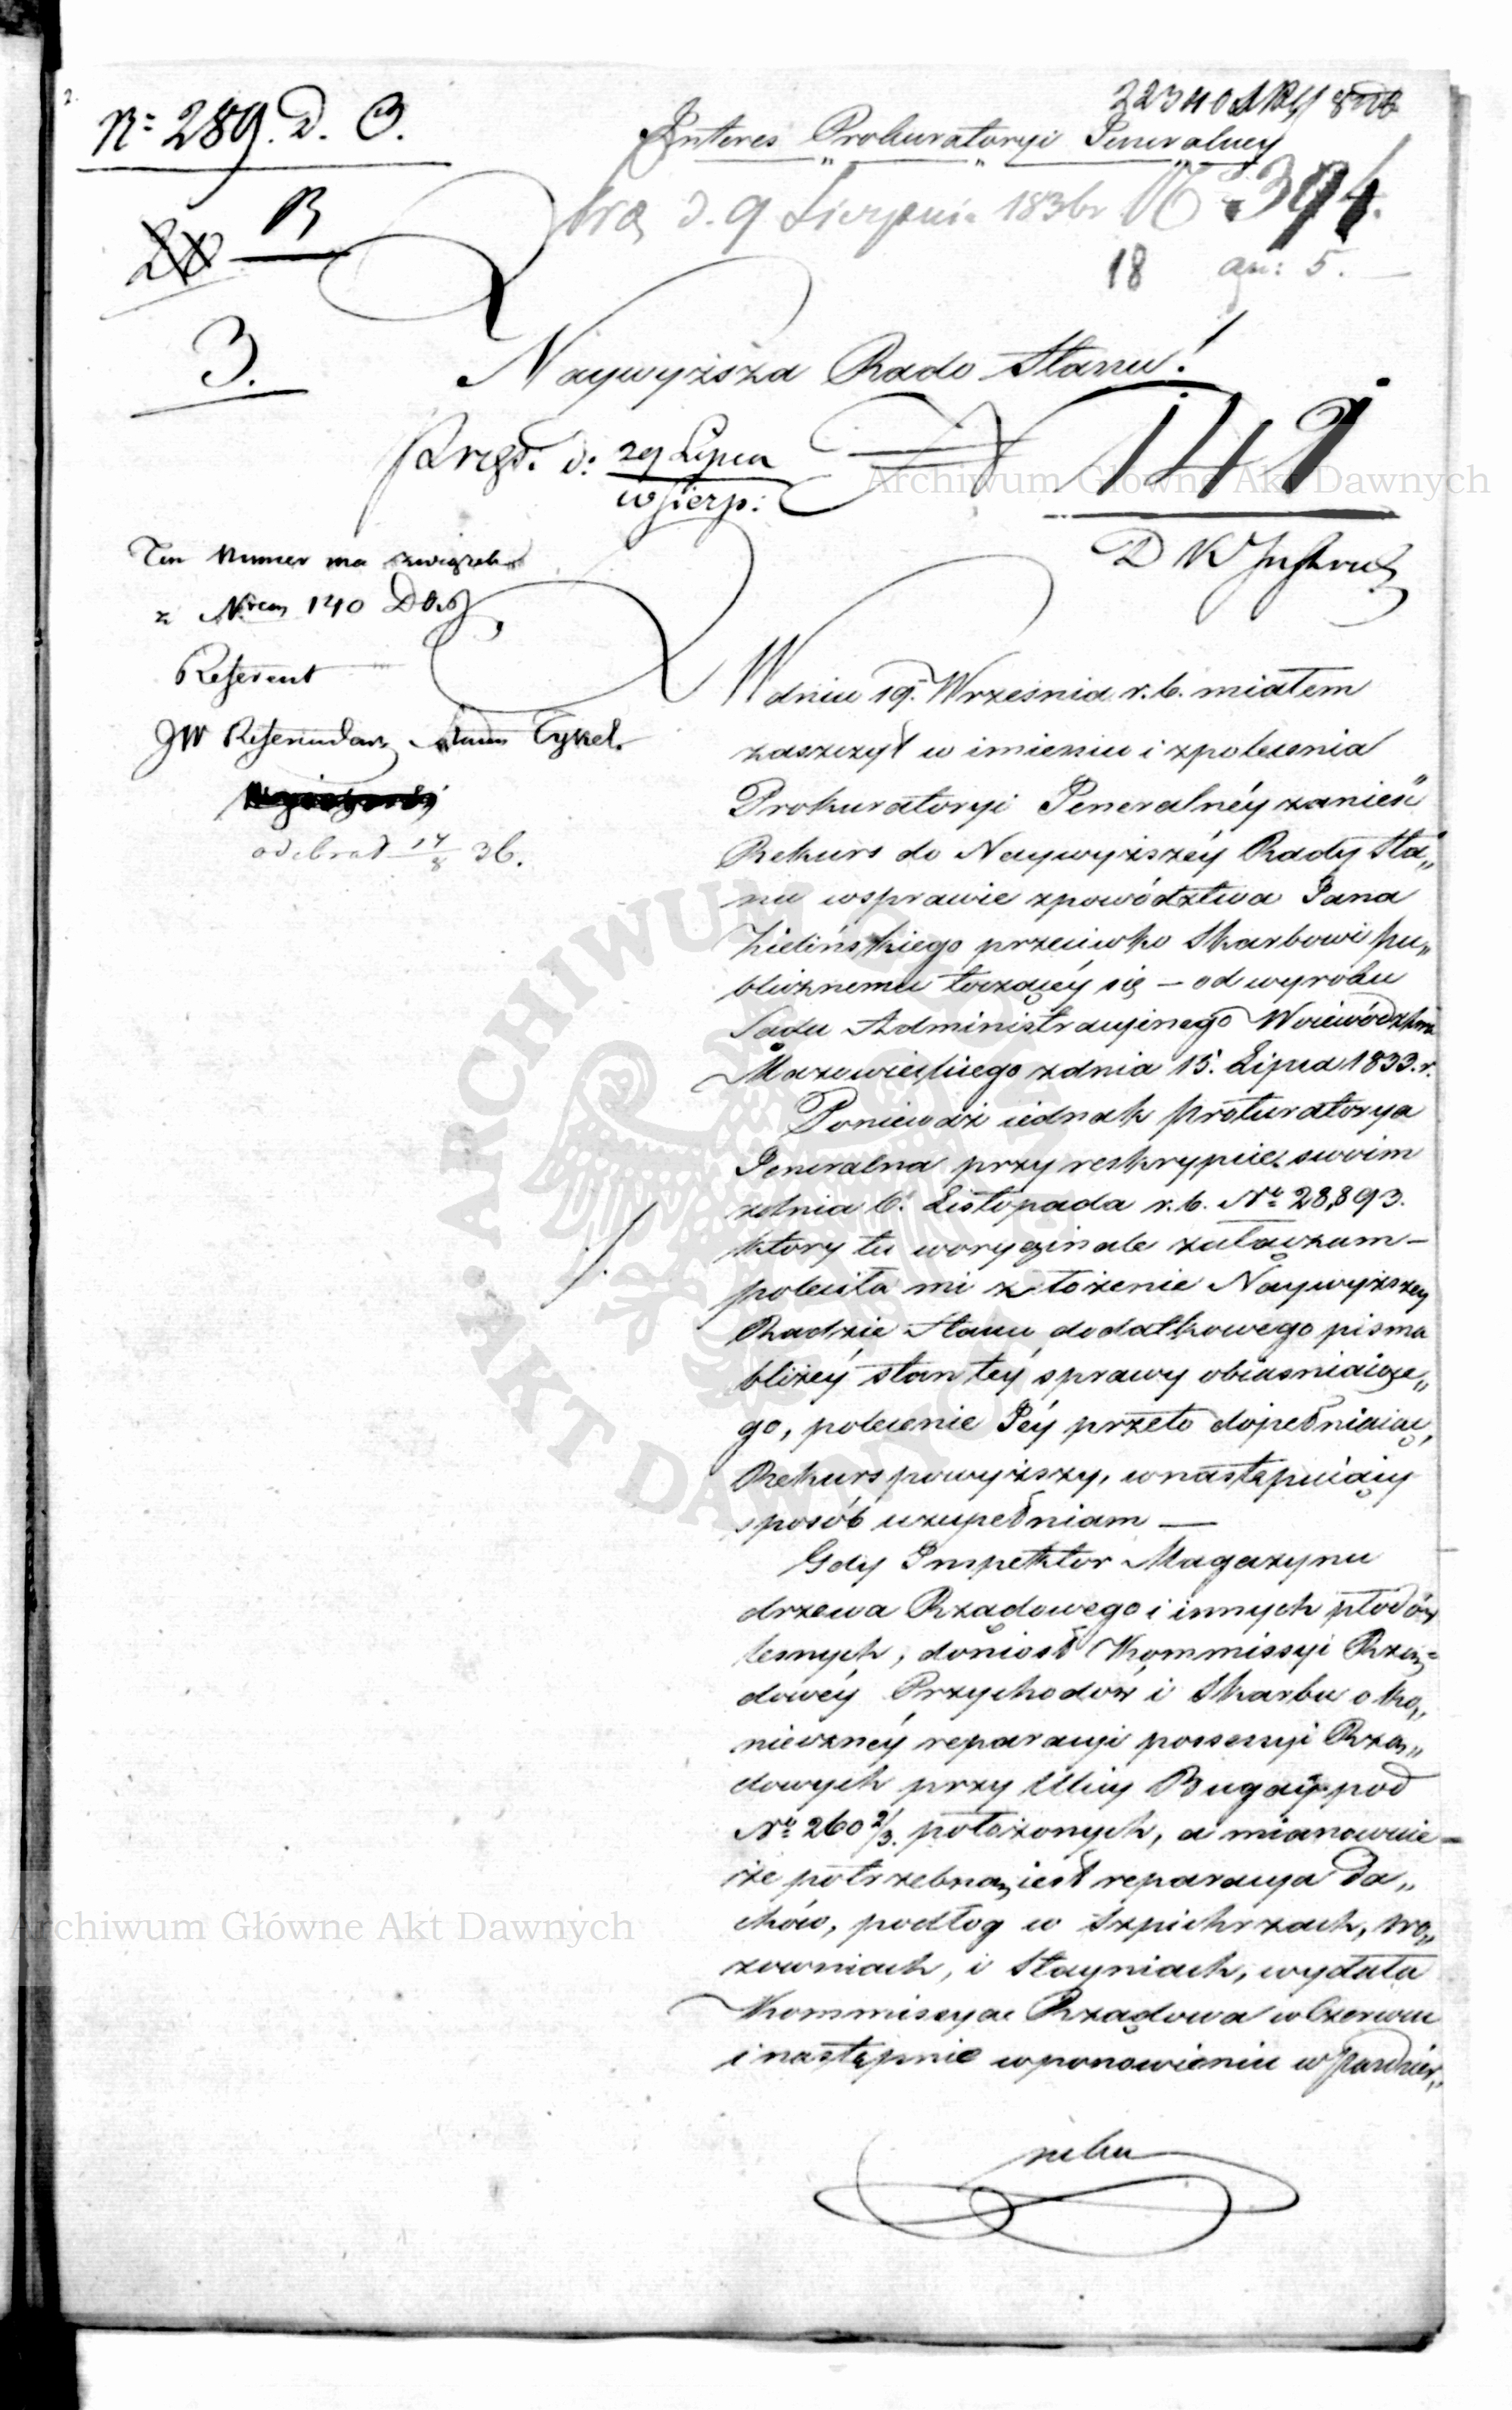 N= 289. D. C.
Interes Prokuratoryi Generalney
d. 9 Sierpnia 1836 N 394.
B
18 an: 5.
3.
Naywyższa Rado Stanu!
d: 29 Lipca
10 Sierp:
141
Archiwum Główne Akt Dawnych
Ten Numer ma związek
z Nrem 140
Referent
JW Referendarz Stanu Tykel.
odebrał 14/8 36.
W dniu 19. Września r. b. miałem
zaszczyt w imieniu i zpolecenia
Prokuratoryi Generalnéy zanieść
Rekurs do Naywyższéy Rady Sta„
nu wsprawie zpowództwa Jana
Zielińskiego przeciwko Skarbowi pu„
blicznemu toczącéy się – od wyroku
Sądu Administracyinego Woiewództwa
Mazowieckiego zdnia 15. Lipca 1833. r.
Ponieważ iednak Prokuratorya
Generalna przy reskrypcie swoim
zdnia 6. Listopada r. b. Nr 28,893.
który tu woryginale załączam –
poleciła mi złożenie Naywyższey
Radzie Stanu dodatkowego pisma
bliżéy stan téy sprawy obiaśniaiące„
go, polecenie Jéy przeto dopełniaiąc,
Rekurs powyższy, wnastępuiący
sposób uzupełniam —
Gdy Inspektor Magazynu
drzewa Rządowego i innych płodów
leśnych, doniosł Kommissyi Rzą=
dowéy Przychodów i Skarbu o ko„
nieczney reparacyi possessyi Rzą„
dowych przy Ulicy Bugay pod
Nr 260 2/3. położonych, a mianowicie –
że potrzebną iest reparacya Da„
chów, podłog w Szpichrzach, wo„
zowniach, i Stayniach, wydała
Kommissya Rządowa w Czerwcu
i następnie wponowieniu w Paździer„
niku
Archiwum Główne Akt Dawnych
ARCHIWUM GŁÓWNE AKT DAWNYCH